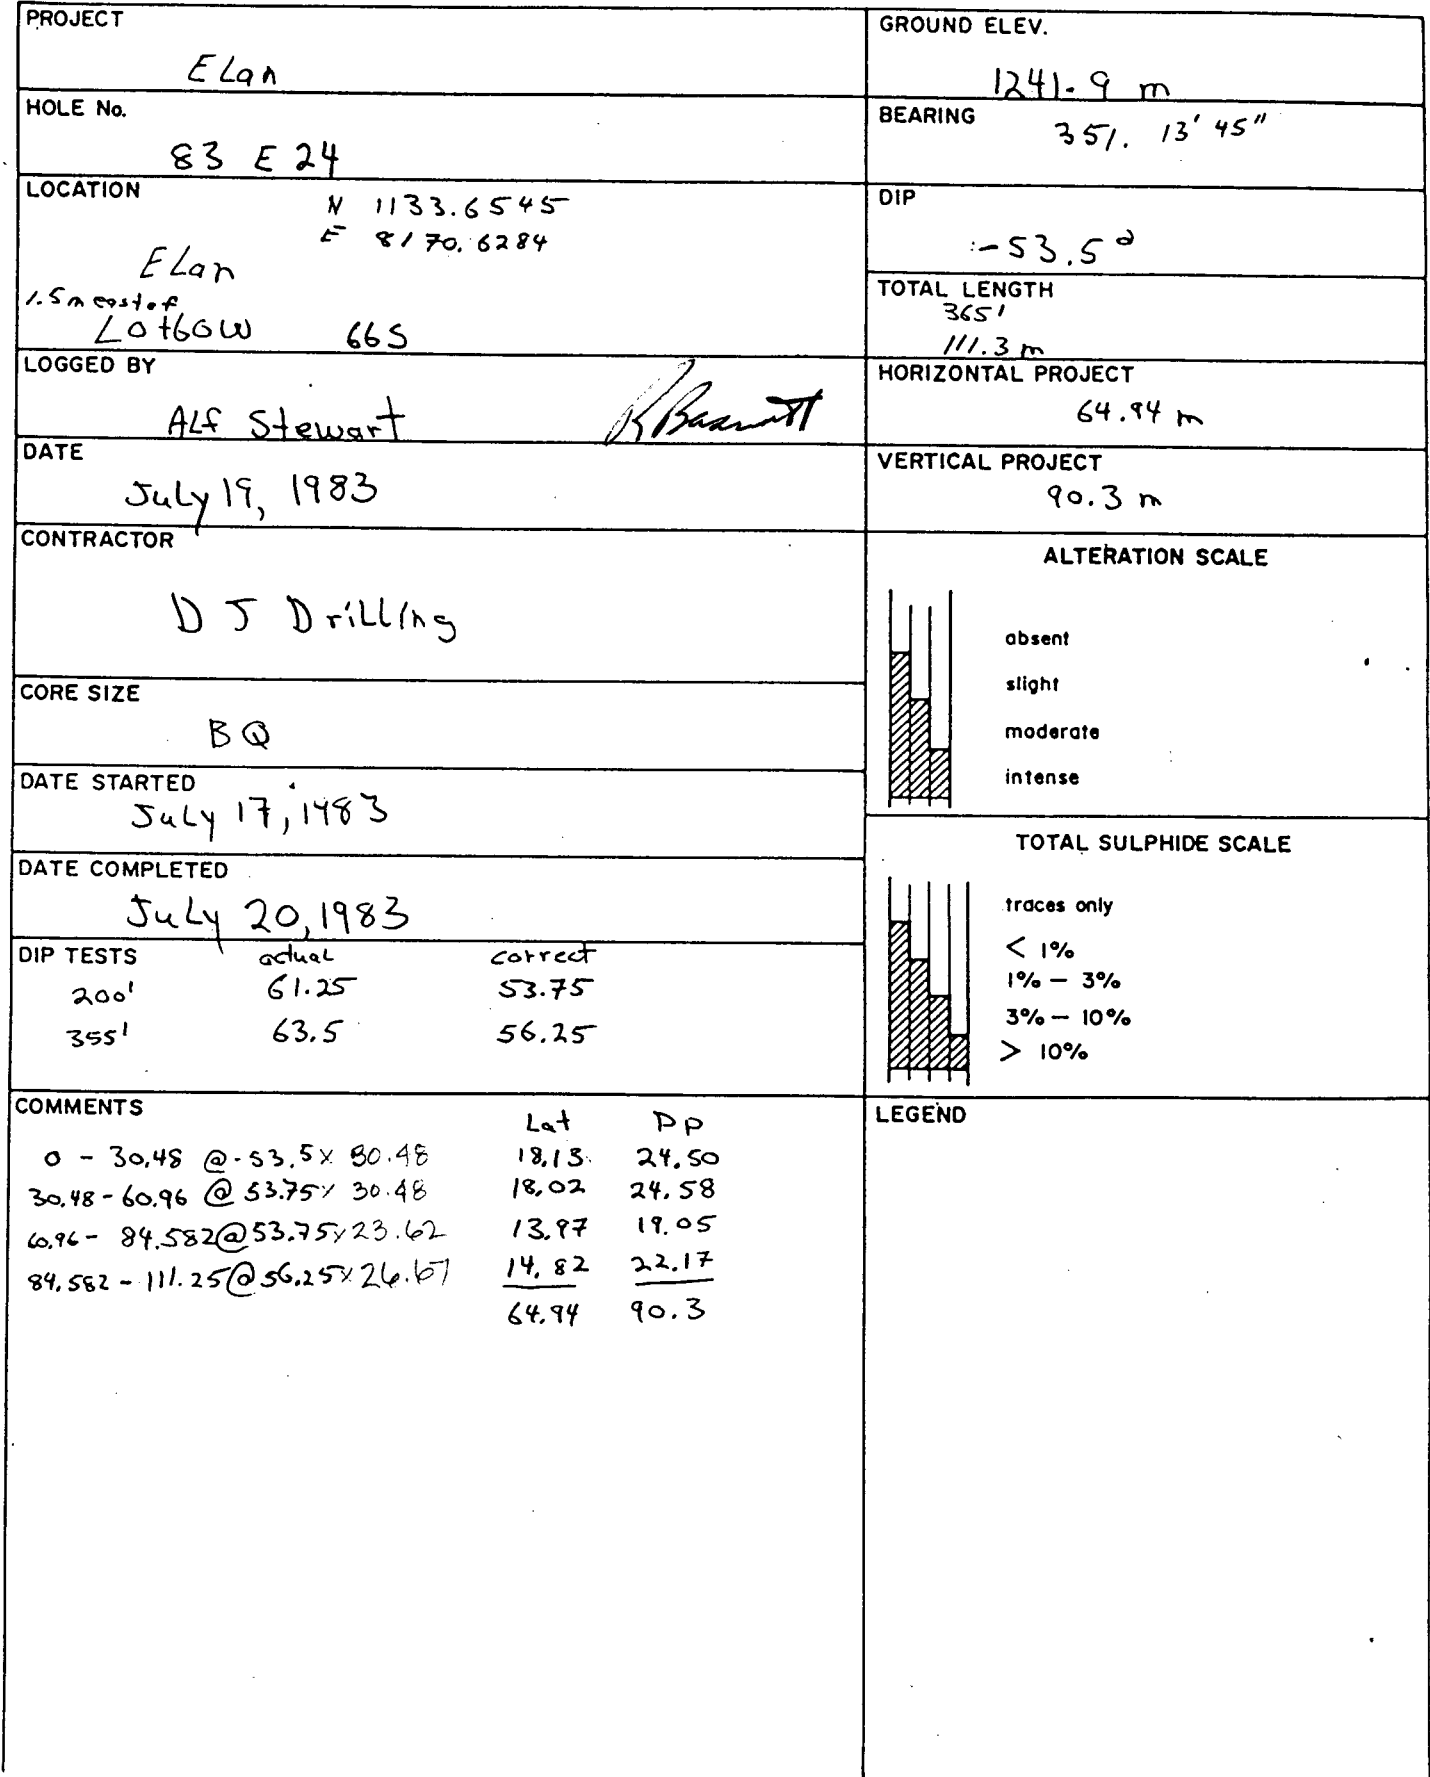 PROJECT
ELan
HOLE No.
83 E 24
LOCATION
N 1133.6545
E 8170.6284
ELan
1.5m east of
L0+60W 66S
LOGGED BY
ALf Stewart
DATE
July 19, 1983
CONTRACTOR
D J DriLLing
CORE SIZE
BQ
DATE STARTED
JuLy 17, 1983
DATE COMPLETED
JuLy 20, 1983
DIP TESTS actual correct
200' 61.25 53.75
355' 63.5 56.25
COMMENTS
Lat Dp
0 - 30.48 @ -53.5 x 30.48 18.13 24.50
30.48 - 60.96 @ 53.75 x 30.48 18.02 24.58
60.96 - 84.582 @ 53.75 x 23.62 13.97 19.05
84.582 - 111.25 @ 56.25 x 26.67 14.82 22.17
64.94 90.3
GROUND ELEV.
1241.9 m
BEARING
351. 13' 45"
DIP
-53.5°
TOTAL LENGTH
365'
111.3 m
HORIZONTAL PROJECT
64.94 m
VERTICAL PROJECT
90.3 m
ALTERATION SCALE
absent
slight
moderate
intense
TOTAL SULPHIDE SCALE
traces only
< 1%
1% – 3%
3% – 10%
> 10%
LEGEND